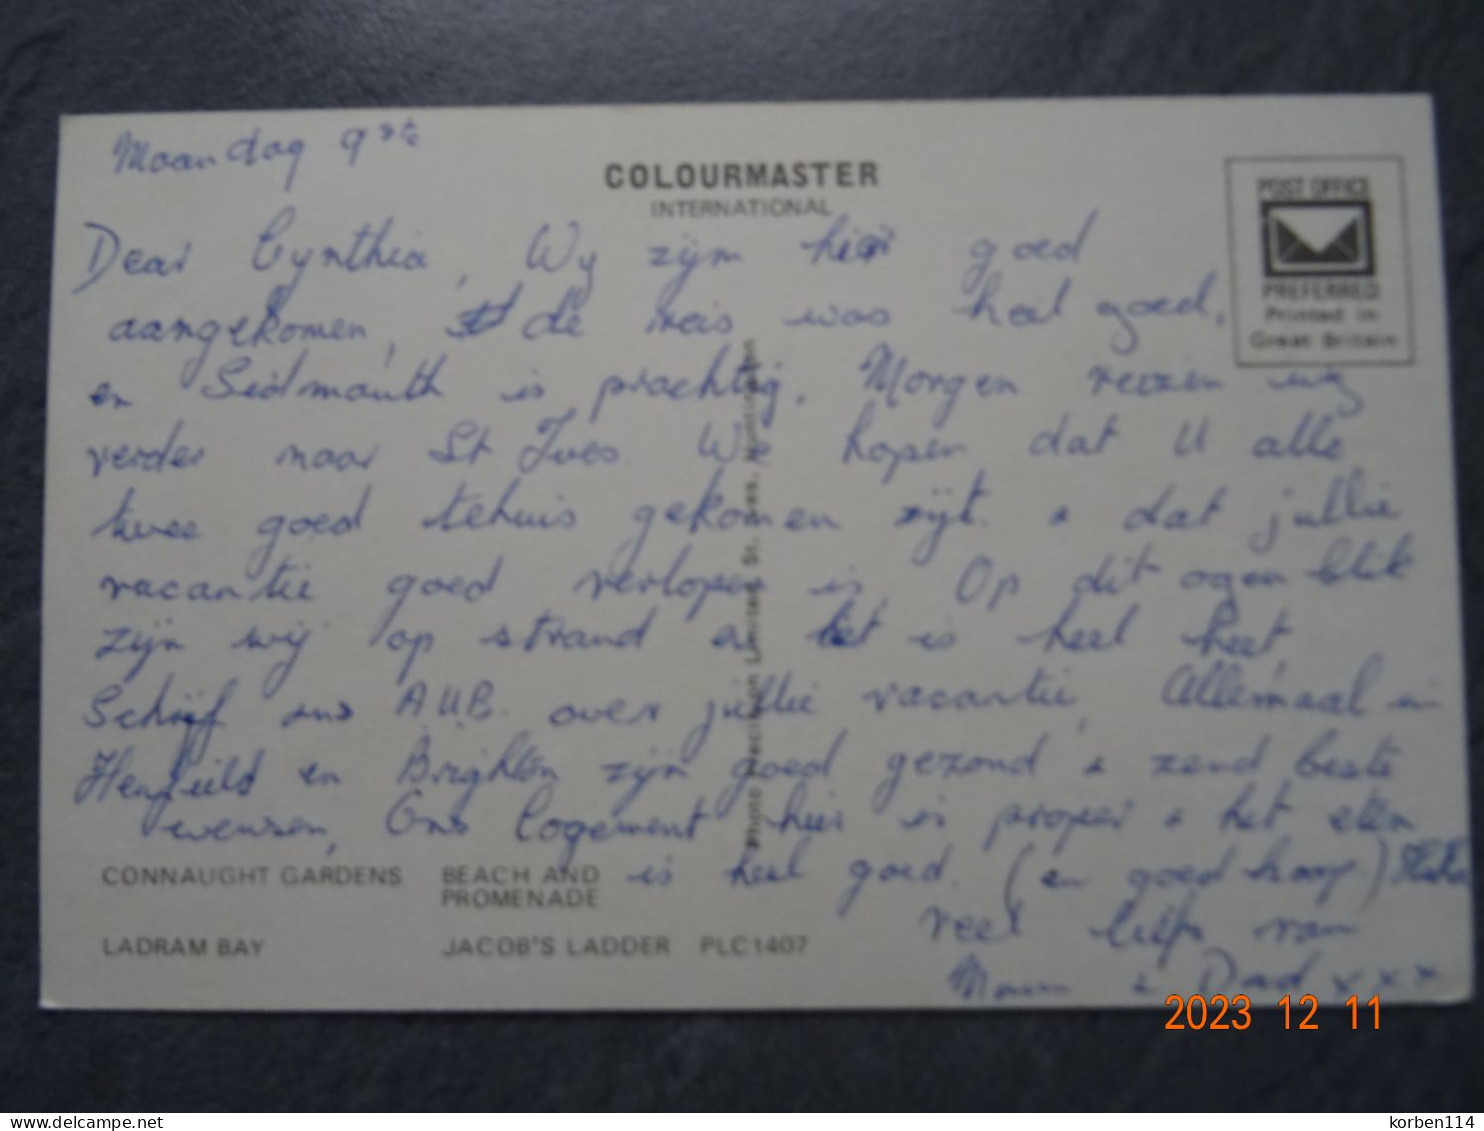 Maandag 9ste
COLOURMASTER
INTERNATIONAL
POST OFFICE
PREFERRED
Printed in
Great Britain
Dear Cynthia, Wy zijn hier goed
aangekomen, de reis was heel goed,
en Sidmouth is prachtig. Morgen reizen wij
verder naar St Ives. We hopen dat U alle
twee goed tehuis gekomen zijt. & dat jullie
vacantie goed verlopen is. Op dit ogenblik
zijn wij op strand en het is heel heet,
Schrijf ons A.U.B. over jullie vacantie, Allemaal in
Henfield en Brighton zijn goed gezond & zend beste
wensen, Ons logement hier is proper & het eten
is heel goed. (en goed koop)
veel liefs van
Mum & Dad xxx
Photo Precision Limited, St. Ives, Huntingdon
CONNAUGHT GARDENS BEACH AND
PROMENADE
LADRAM BAY JACOB'S LADDER PLC1407
2023 12 11
delcampe.net
korben114